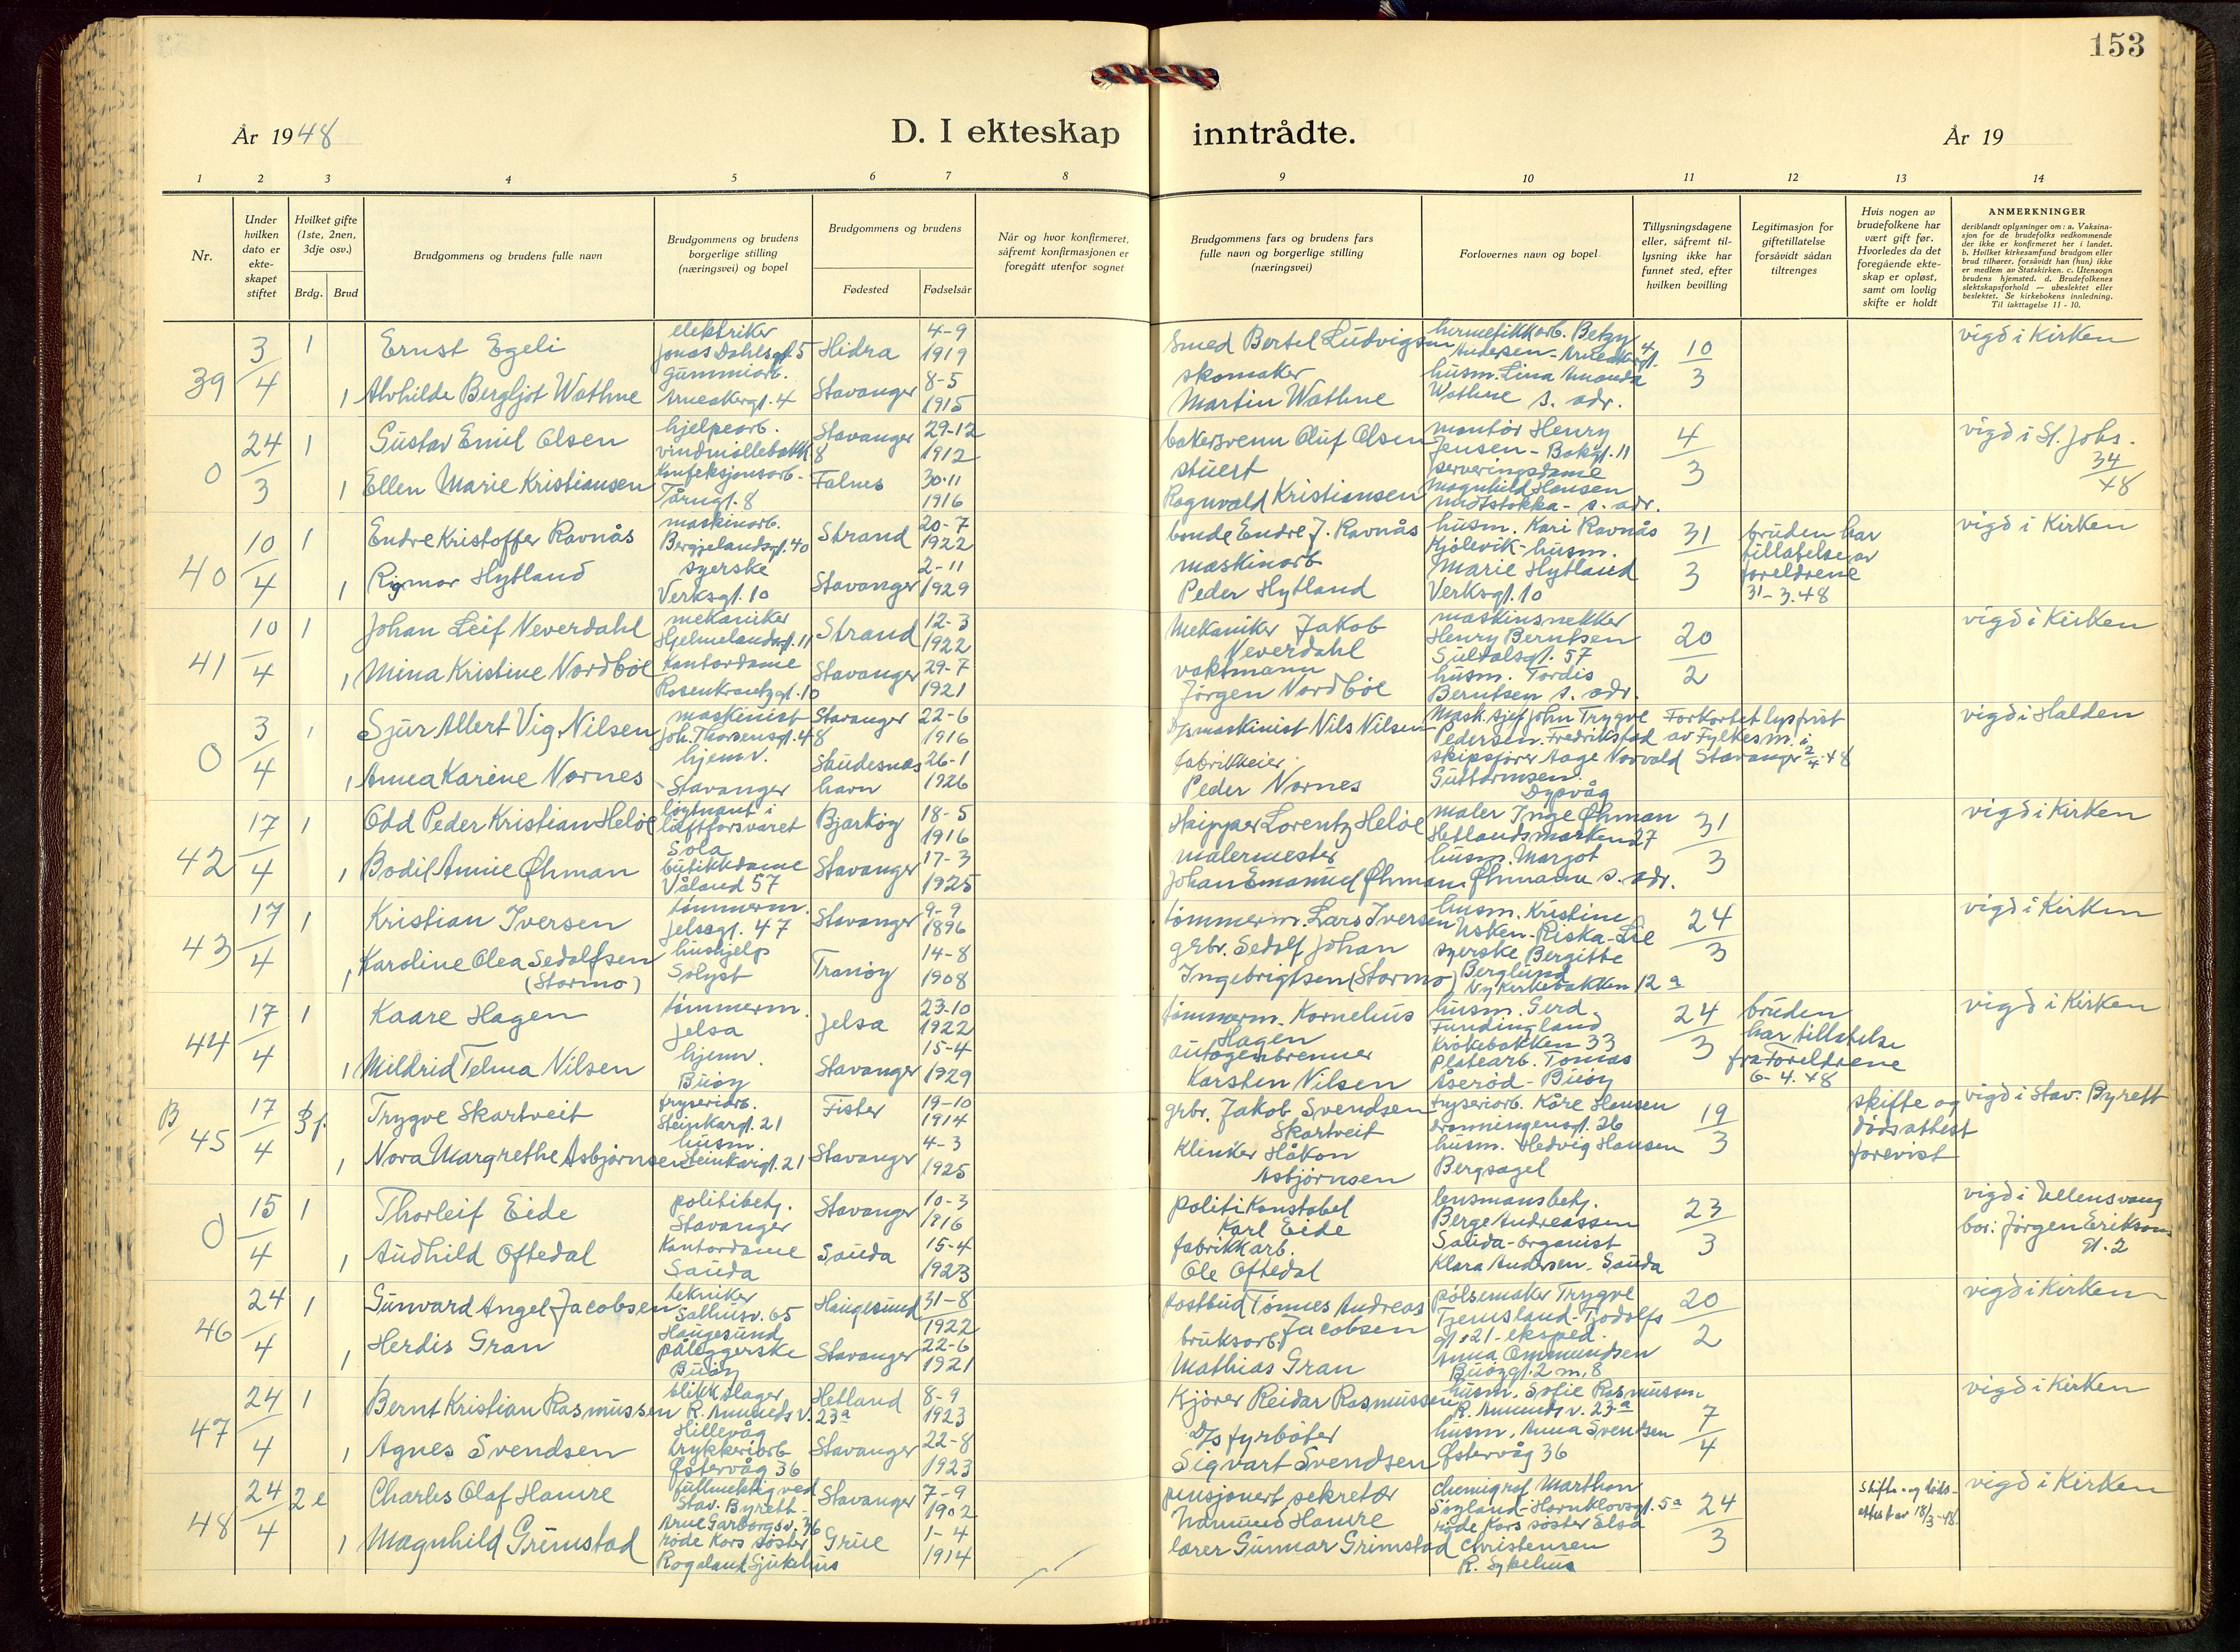 153
År 1948
D. I ekteskap inntrådte.
År 19
1 2 3 4 5 6 7 8 9 10 11 12 13 14
Nr.
Under hvilken dato er ekte-skapet stiftet
Hvilket gifte (1ste, 2nen, 3dje osv.)
Brdg. Brud
Brudgommens og brudens fulle navn
Brudgommens og brudens borgerlige stilling (næringsvei) og bopel
Brudgommens og brudens
Fødested Fødselsår
Når og hvor konfirmeret, såfremt konfirmasjonen er foregått utenfor sognet
Brudgommens fars og brudens fars fulle navn og borgerlige stilling (næringsvei)
Forlovernes navn og bopel
Tillysningsdagene eller, såfremt til-lysning ikke har funnet sted, efter hvilken bevilling
Legitimasjon for giftetillatelse forsåvidt sådan tiltrenges
Hvis nogen av brudefolkene har vært gift før. Hvorledes da det foregående ekte-skap er opløst, samt om lovlig skifte er holdt
ANMERKNINGER
deriblandt oplysninger om: a. Vaksina-sjon for de brudefolks vedkommende der ikke er konfirmeret her i landet. b. Hvilket kirkesamfund brudgom eller brud tilhører, forsåvidt han (hun) ikke er medlem av Statskirken. c. Utensogn brudens hjemsted. d. Brudefolkenes slektskapsforhold — ubeslektet eller beslektet. Se kirkebokens innledning. Til iakttagelse 11 - 10.
39 3/4 1 Ernst Egeli elektriker Jonas Dahlsgt. 5 Hidra 4-9 1919 Smed Bertel Ludvigsen 10/3 vigd i Kirken
1 Alvhilde Bergljot Wathne gummiarb. Stavanger 8-5 1915 skomaker Martin Wathne husm. Lina Amanda Wathne s. adr.
0 24/3 1 Gustav Emil Olsen hjelpearb. vindmøllebakk 8 Stavanger 29-12 1912 bakersvenn Oluf Olsen montør Henry Jensen - Bokgt. 11 4/3 vigd i St. Johs. 34/48
1 Ellen Marie Kristiansen Konfeksjonsarb. Tårngt. 8 Falnes 30-11 1916 stuert Ragnvald Kristiansen serveringsdame Magnhild Hansen s. adr.
40 10/4 1 Endre Kristoffer Ravnås maskinarb. Bergjelandsgt. 40 Strand 20-7 1922 bonde Endre J. Ravnås husm. Kari Ravnås Kjølevik - 31/3 bruden har tillatelse av foreldrene 31-3.48 vigd i Kirken
1 Rigmor Hytland syerske Verksgt. 10 Stavanger 2-11 1929 maskinarb Peder Hytland husm. Marie Hytland Verksgt. 10
41 10/4 1 Johan Leif Neverdahl mekaniker Hjelmelandsgt. 11 Strand 12-3 1922 Mekaniker Jakob Neverdahl maskinsnekker Henry Berntsen Suldalsgt. 57 20/2 vigd i Kirken
1 Mina Kristine Nordbøe Kontordame Rosenkrantzgt. 10 Stavanger 29-7 1921 vaktmann Jørgen Nordbøe husm. Tordis Berntsen s. adr.
0 3/4 1 Sjur Allert Vig Nilsen maskinist Joh. Thorsensgt. 48 Stavanger 22-6 1916 D/s maskinist Nils Nilsen Mask. sjef John Trygve Pedersen. Fredrikstad Forkortet lysfrist av Fylkesm. i Stavanger 2/4-48 vigd i Halden
1 Anna Karine Vornes hjemv. Stavanger Skudesneshavn 26-1 1926 fabrikkeier Peder Vornes skipsfører Aage Guttormsen. Dypvåg
42 17/4 1 Odd Peder Kristian Heløe løytnant i luftforsvaret Sola Bjarkøy 18-5 1916 Skipper Lorentz Heløe maler Inge Øhman Hetlandsmarken 27 31/3 vigd i Kirken
1 Bodil Annie Øhman butikkdame Våland 57 Stavanger 17-3 1925 malermester Johan Emanuel Øhman husm. Margot Øhmann s. adr.
43 17/4 1 Kristian Iversen tømmerm. Jelsagt. 47 Stavanger 9-9 1896 tømmerm. Lars Iversen husm. Kristine Usken - Riska - 24/3 vigd i Kirken
1 Karoline Olea Sedolfsen (Stormo) hushjelp Solyst Tranøy 14-8 1908 grbr. Sedolf Johan Ingebrigtsen (Stormo) syerske Bergitte Berglund Ny Kirkebakken 12 a
44 17/4 1 Kaare Hagen tømmerm. Jelsa Jelsa 23-10 1922 tømmerm. Kornelius Hagen husm. Gerd Fundingland Krøkebakken 33 24/3 bruden har tillatelse fra Foreldrene 6-4.48 vigd i Kirken
1 Mildrid Telma Nilsen hjemv. Buøy Stavanger 15-4 1929 autogenbrenner Karsten Nilsen platearb. Tomas Åserød - Buøy
B 45 17/4 Trygve Skartveit fryseriarb. Steinkargt. 21 Fister 19-10 1914 grbr. Jakob Svendsen Skartveit fryseriarb. Kåre Hansen Dronningensgt. 26 19/3 skifte og dødsattest forevist vigd i Stav. Byrett
1 Nora Margrethe Asbjørnsen husm. Steinkargt. 21 Stavanger 4-3 1925 Klinker Håkon Asbjørnsen husm. Hedvig Hansen Bergsagel
0 15/4 1 Thorleif Eide politibetj. Stavanger Stavanger 10-3 1916 politikonstabel Karl Eide lensmansbetj. Berge Andreassen Sauda - 23/3 vigd i Ullensvang bor: Jørgen Eriksons gt. 2
1 Audhild Oftedal Kontordame Sauda Sauda 15-4 1923 fabrikkarb. Ole Oftedal organist Klara Andersen. Sauda
46 24/4 1 Gunvard Angel Jacobsen tekniker Salhusv. 65 Haugesund Haugesund 31-8 1922 Postbud Tønnes Andreas Jacobsen pølsemaker Trygve Tjemsland - Tjodolfs gt. 21 - 20/2 vigd i Kirken
1 Herdis Gran påleggerske Buøy Stavanger 22-6 1921 bruksarb. Mathias Gran eksped. Anna Ommundsen Buøygt. 2 m. 8
47 24/4 1 Bernt Kristian Rasmussen blikkslager R. Amundsv. 23 a Hillevåg Hetland 8-9 1923 Kjører Reidar Rasmussen husm. Sofie Rasmussen R. Amunds v. 23 a 7/4 vigd i Kirken
1 Agnes Svendsen trykkeriarb Østervåg 36 Stavanger 22-8 1923 D/s fyrbøter Sigvart Svendsen husm. Anna Svendsen Østervåg 36
48 24/4 2 e Charles Olaf Hamre fullmektig ved Stav. Byrett - Arne Garborgsv. 36 Stavanger 7-9 1902 pensjonert sekretær Hamre chemigraf Marthon Søyland - Hornklovsgt. 5 a 24/3 Skifte- og døds-attest av 18/3-48 vigd i Kirken
1 Magnhild Grimstad røde Kors søster Rogaland Sjukehus Grue 1-4 1914 lærer Gunnar Grimstad røde Kors søster Elsa Christensen R. Sykehus